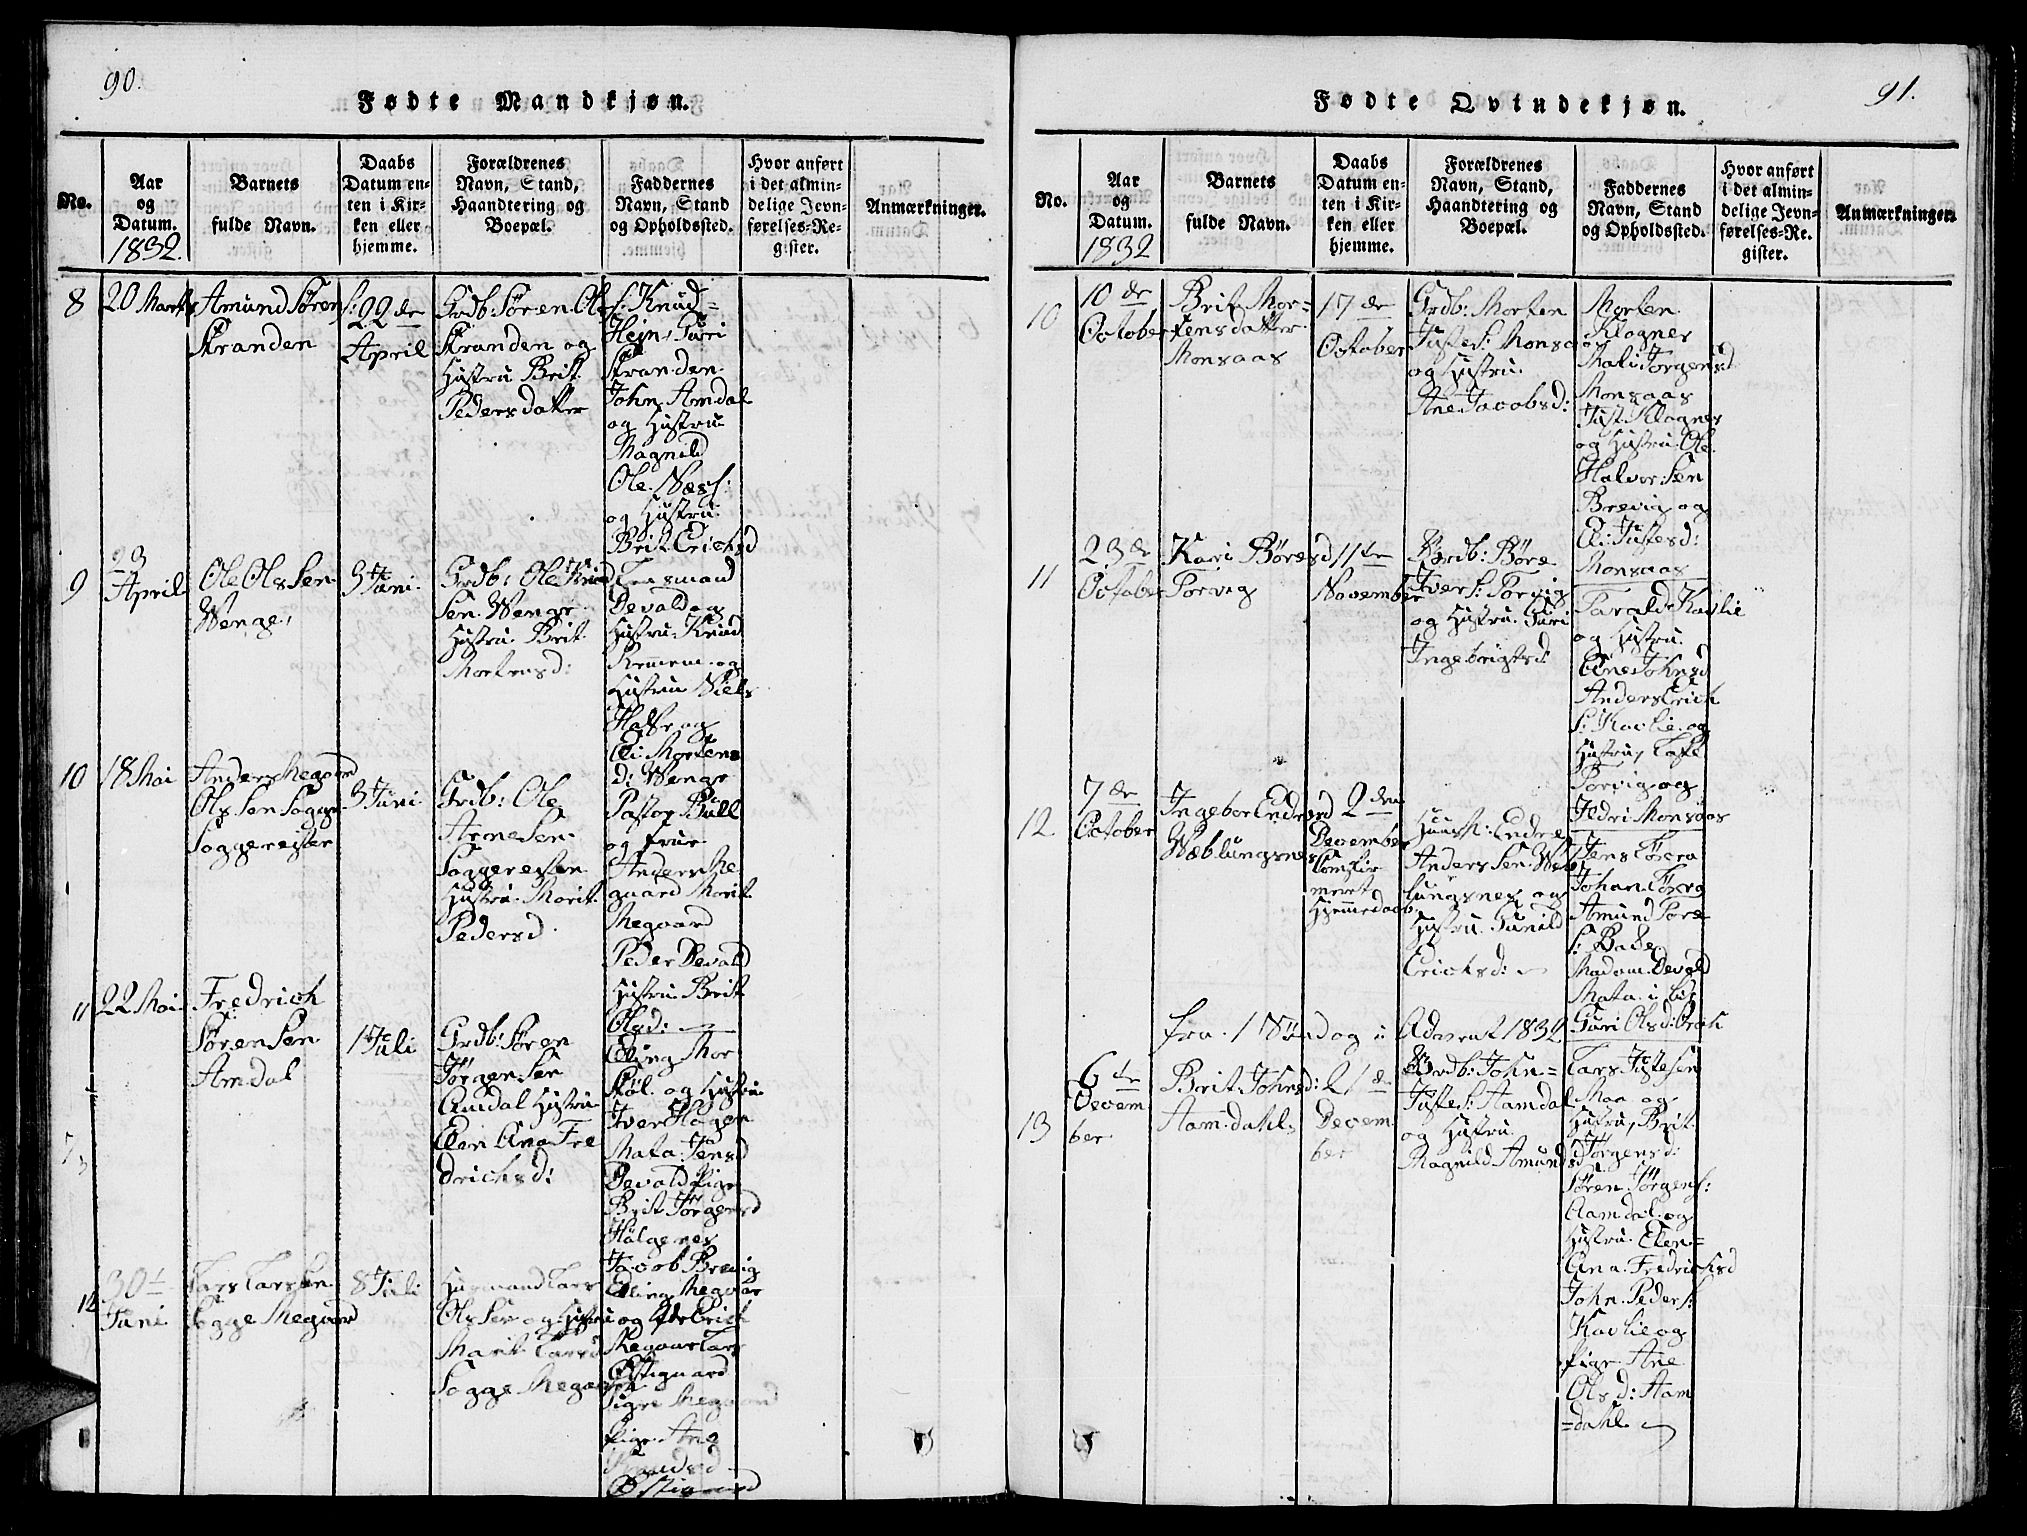 90.
Fødte Mandkjøn.
No.
Aar
og
Datum.
1832.
Barnets
fulde Navn.
Daabs
Datum en-
ten i Kir-
ken eller
hjemme.
Forældrenes
Navn, Stand,
Haandtering og
Boepæl.
Faddernes
Navn, Stand
og Opholdssted.
Hvor anført
i det almin-
delige Jevn-
førelses-Re-
gister.
Anmærkninger.
8
20 Marts
Amund Søren
Stranden
22de
April
Grdb: Søren Ole
Stranden og
Hustru Brit
Pedersdatter
Knud
Guri
Stranden
John Amdal
og Hustru
Magnild
Ole Næs
og Hustru
Brit Erichsd
9
23
April
Ole Olssen
Wenge
3 Juni
Grdb: Ole Knud
sen Wenge
Hustru Brit
Mortensd:
Lensmand
Devold og
Hustru Knud
og
Hustru Niels
og
Eli Mortens
d: Wenge
10
18 Mai
Anders Megaard
Olssen Sogge
3 Juni
Grdb: Ole
Arnesen
Hustru Marit
Pedersd
Pastor Bull
og frue
Anders Me
gaard Marit
Megaard
Peder Devold
Hustru Brit
Olsd:
11
22 Mai
Fredrich
Sørensen
Amdal
1 Juli
Grdb: Søren
Jørgensen
Amdal Hustru
Elen Ana Fre
drichsd:
Eling Mor
og Hustru
Iver Hagen
Mata Jensd
Devold Pige
Brit Jørgensd
Jacob Brevig
12
30t
Juni
Lars Larssen
Sogge Megaard
8 Juli
Husmand Lars
Olssen og Hustru
Marit Larsd
Sogge Megaard
Eling Megaar
og Erich
Megaar Lars
Østigaard
Megaard
pige Ane
Knudsd
Østigaard
91.
Fødte Qvindekjøn.
No.
Aar
og
Datum.
1832
Barnets
fulde Navn.
Daabs
Datum en-
ten i Kir-
ken eller
hjemme.
Forældrenes
Navn, Stand,
Haandtering og
Boepæl.
Faddernes
Navn, Stand
og Opholdssted.
Hvor anført
i det almin-
delige Jevn-
førelses-Re-
gister.
Anmærkninger.
10
10de
October
Brit Mor-
tensdatter
Monsaas
17de
October
Grdb: Morten
Justes: Monsaas
og Hustru
Ane Jacobsd:
Morten
Klognes
Mali Jørgensd
Monsaas
Just Klognes
og Hustru Ole
Halvorsen
Brevig og
Eli Justesd:
Monsaas
11
23de
October
Kari Børesd
Torvig
11te
November
Grdb: Børe
Ivers: Torvig
og Hustru Guri
Ingebrigtsd:
Tarald Kavlie
og Hustru
Ane Johnsd
Anders Erich
s: Kavlie og
Hustru,
Torvig og
Ildri Monsaas
12
7de
October
Ingebor Endresd
Wæblungsnes
2den
December
Confir
meret
Hjemmedaab
Huusm: Endre
Anderssen Wæb
lungsnes og
Hustru Gunild
Erichsd:
Jens
Johan
Amund Tore
s:
Madam Devold
Mata
Guri Olsd:
fra 1 Søndag i Advent 1832
13
6te
Decem
ber
Brit Johnsd:
Aamdahl
21de
Decem
ber
Grdb: John
Justes: Aamdal
og Hustru
Magnild Amundsd
Lars Justesen
Moa og
Hustru, Brit
Jørgensd:
Søren Jørgens:
Aamdal og
Hustru Elen
Ana Fredrichsd
John Peders:
Kavlie og
pige Ane
Olsd: Aam
=dahl